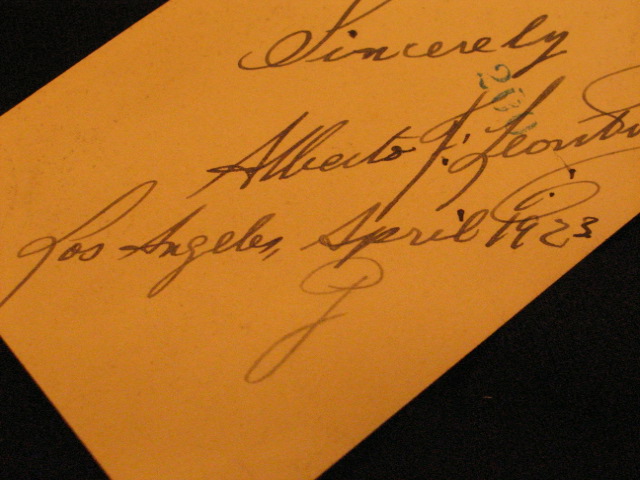 Sincerely
Alberto J.
Los Angeles, April 1923